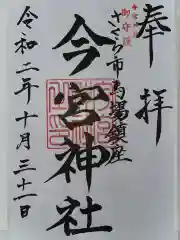 奉拝
さくら市馬場鎮座
今宮神社
令和二年十月三十一日